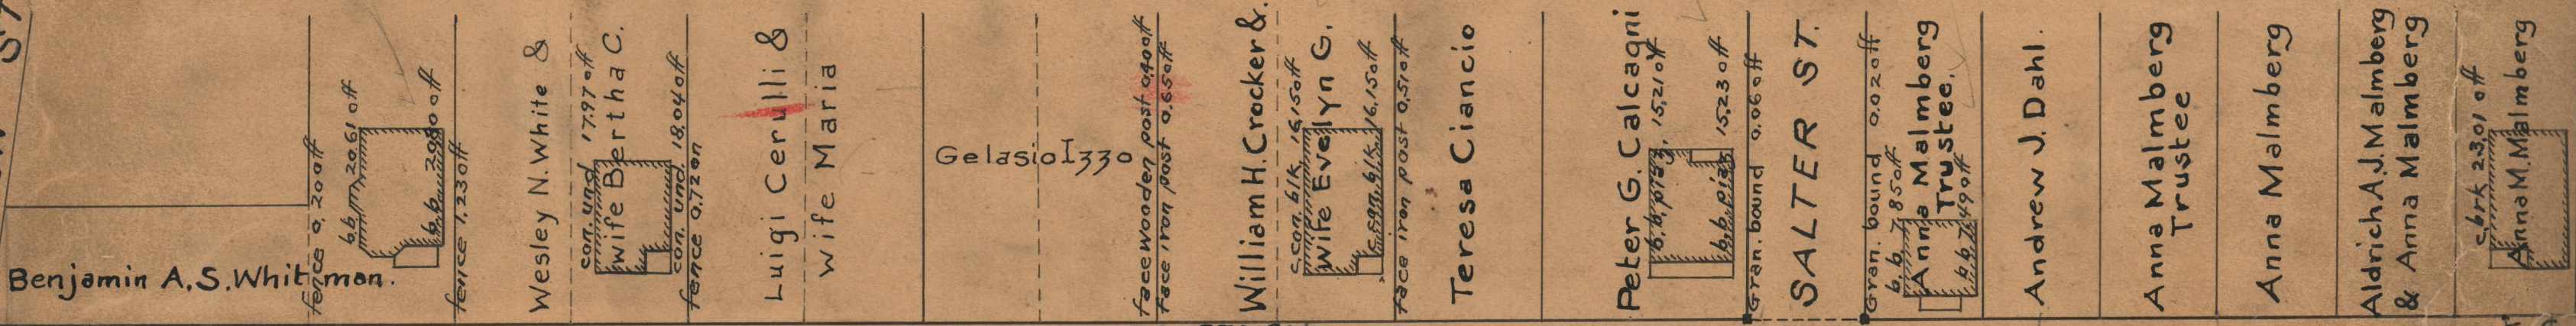 Benjamin A.S. Whitman.
fence 0,200 off
b,b, m, 20,61 off
b,b, 20,80 off
fence 1,230 off
Wesley N. White &
con. und. 17.97 off
wife Bertha C.
con. und. 18,04 off
fence 0,720 n
Luigi Cerulli &
wife Maria
Gelasio Izzo
face wooden post 0,400 off
face iron post 0,65 off
William H. Crocker &.
c,con. blk, 16,150 off
Wife Evelyn G.
c,con, blk, 16,150 off
face iron post 0,510 off
Teresa Ciancio
Peter G. Calcagni
b,b, piaz, 15,21 off
b,b, piaz, 15,23 off
Gran. bound 0,06 off
SALTER ST.
Gran. bound 0,02 off
b,b 7,850 off
Anna Malmberg
Trustee.
b,b 7,499 off
Andrew J. Dahl.
Anna Malmberg
Trustee
Anna Malmberg
Aldrich A.J. Malmberg
& Anna Malmberg
c,brk 23,01 off
Anna M. Malmberg